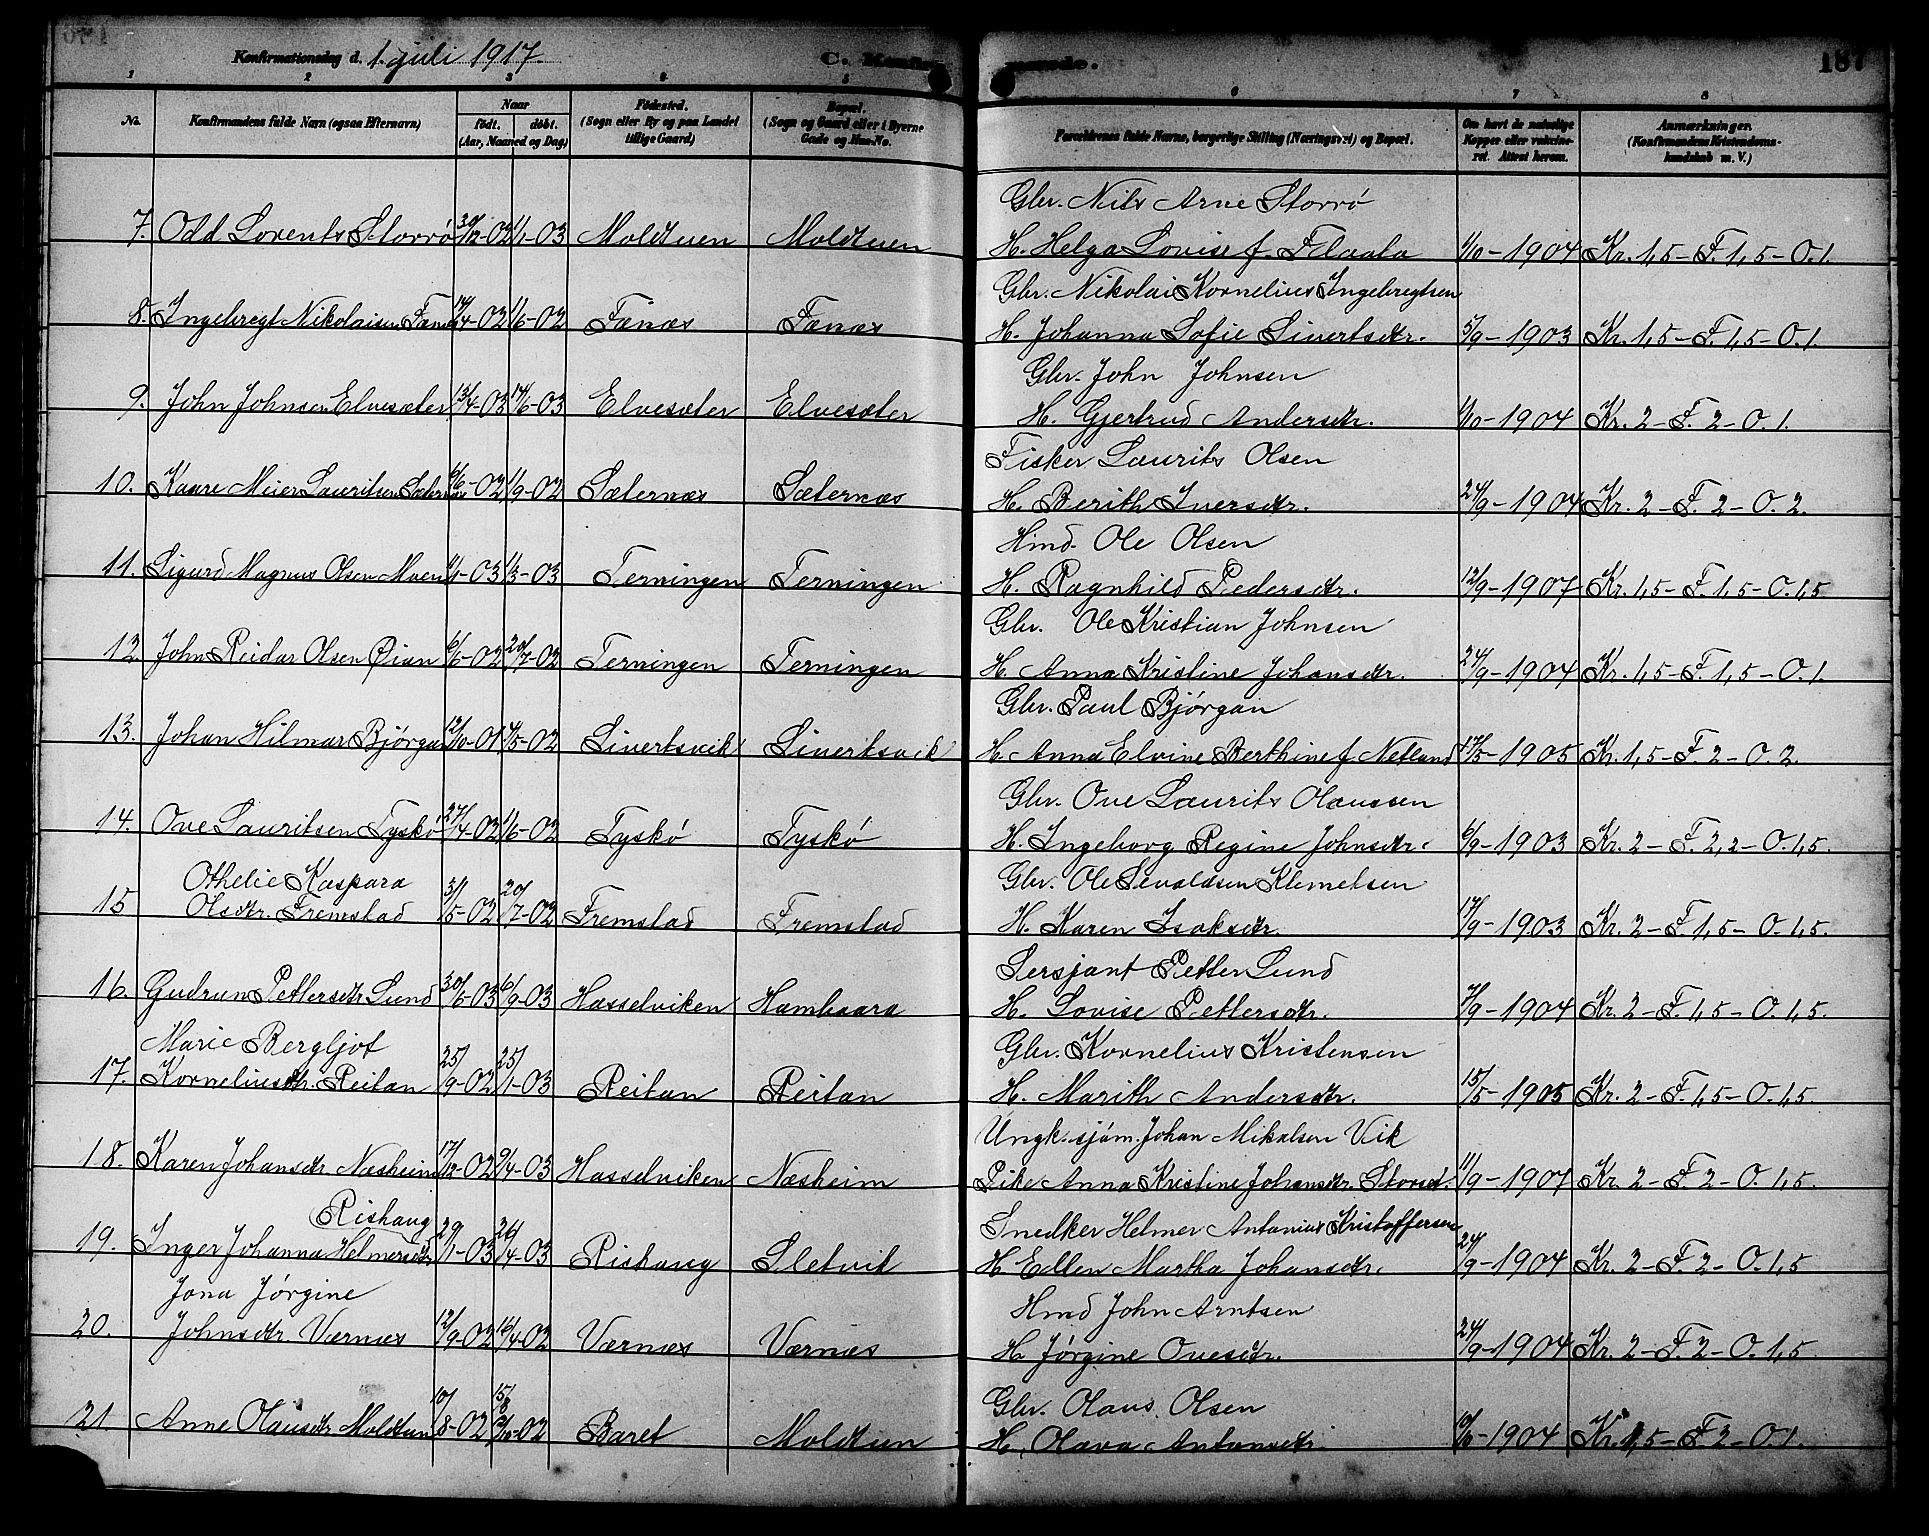 Konfirmationsdag d. 1. juli 1917.
C. Konfir- merede.
187
1 2 3 4 5 6 7 8
No.
Konfirmandens fulde Navn (ogsaa Efternavn)
Naar
født. døbt.
(Aar, Maaned og Dag)
Fødested.
(Sogn eller By og paa Landet
tillige Gaard)
Bopæl.
(Sogn og Gaard eller i Byerne
Gade og Hus-No.
Forældrenes fulde Navne, borgerlige Stilling (Næringsvei) og Bopæl.
Om havt de naturlige
Kopper eller vaksine-
ret. Attest herom.
Anmærkninger.
(Konfirmandens Kristendoms-
kundskab m. V.)
Gbr. Nils Arne Storrø
7. Odd Lorents Storrø 30/12-02 1/1-03 Moldtuen Moldtuen H. Helga Lovise f. Flaala 1/10-1904 Kr. 1,5 - F. 1,5 - O. 1.
Gbr. Nikolai Kornelius Ingebregtsen
8. Ingebregt Nikolaisen 14/4-02 1/6-02 Fænæs Fænæs H. Johanna Sofie Sivertsdtr. 5/9-1903 Kr. 1,5 - F. 1,5 - O. 1.
Gbr. John Johnsen
9. John Johnsen Elvesæter 13/4-03 14/6-03 Elvesæter Elvesæter H. Gjertrud Andersdtr. 1/10-1904 Kr. 2 - F. 2 - O. 1.
Fisker Laurits Olsen
10. Kaare Meier Lauritsen Sæternæs 6/6-02 1/9-02 Sæternæs Sæternæs H. Berith Iversdtr. 24/9-1904 Kr. 2 - F. 2 - O. 2.
Hmd. Ole Olsen
11. Sigurd Magnus Olsen Moen 1/1-03 1/3-03 Terningen Terningen H. Ragnhild Pedersdtr. 12/9-1907 Kr. 1,5 - F. 1,5 - O. 1,5
Gbr. Ole Kristian Johnsen
12 John Reidar Olsen Øian 6/6-02 20/7-02 Terningen Terningen H. Anna Kristine Johansdtr. 24/9-1904 Kr. 1,5 - F. 1,5 - O. 1.
Gbr. Paul Bjørgan
13. Johan Hilmar Bjørgan 12/10-01 4/5-02 Sivertsvik Sivertsvik H. Anna Elvine Berthine f. Netland 17/5-1905 Kr. 1,5 - F. 2 - O. 2.
Gbr. Ove Laurits Olaussen
14. Ove Lauritsen Tyskø 27/4-02 1/6-02 Tyskø Tyskø H. Ingeborg Regine Johnsdtr. 6/9-1903 Kr. 2 - F. 2,2 - O. 1,5.
Othelie Kaspara Gbr. Ole Sevaldsen Klemetsen
15 Olsdtr. Fremstad 31/5-02 20/7-02 Fremstad Fremstad H. Karen Isaksdtr. 17/9-1903 Kr. 2 - F. 1,5 - O. 1,5.
Sersjant Petter Lund
16. Gudrun Pettersdtr Lund 30/6-03 6/9-03 Hasselviken Hambaara H. Lovise Pettersdtr. 7/9-1904 Kr. 2 - F. 1,5 - O. 1,5.
Marie Bergljot Gbr. Kornelius Kristensen
17. Korneliusdtr. Reitan 25/9-02 25/1-03 Reitan Reitan H. Marith Andersdtr. 15/5-1905 Kr. 2 - F. 1,5 - O. 1,5.
Ungk. sjøm. Johan Mikalsen Vik
18. Karen Johansdtr Næsheim 17/12-02 9/4-03 Hasselviken Næsheim Pike Anna Kristine Johansdtr. 11/9-1907 Kr. 2 - F. 2 - O. 1,5.
Rishaug Snedker Helmer Antonius Kristoffersen
19. Inger Johanna Helmersdtr 29/1-03 26/4-03 Rishaug Sletvik H. Ellen Martha Johansdtr. 24/9-1904 Kr. 2 - F. 2 - O. 1,5
Jona Jørgine Hmd John Arntsen
20. Johnsdtr. Værnæs 12/9-02 16/4-02 Værnæs Værnæs H. Jørgine Ovesdtr. 24/9-1904 Kr. 2 - F. 2 - O. 1,5.
Gbr. Olaus Olsen
21. Anne Olausdtr Moldtun 10/8-02 Baret Moldtun H. Olava Antonsdtr. -1904 Kr. 1,5 - F. 2 - O. 1.